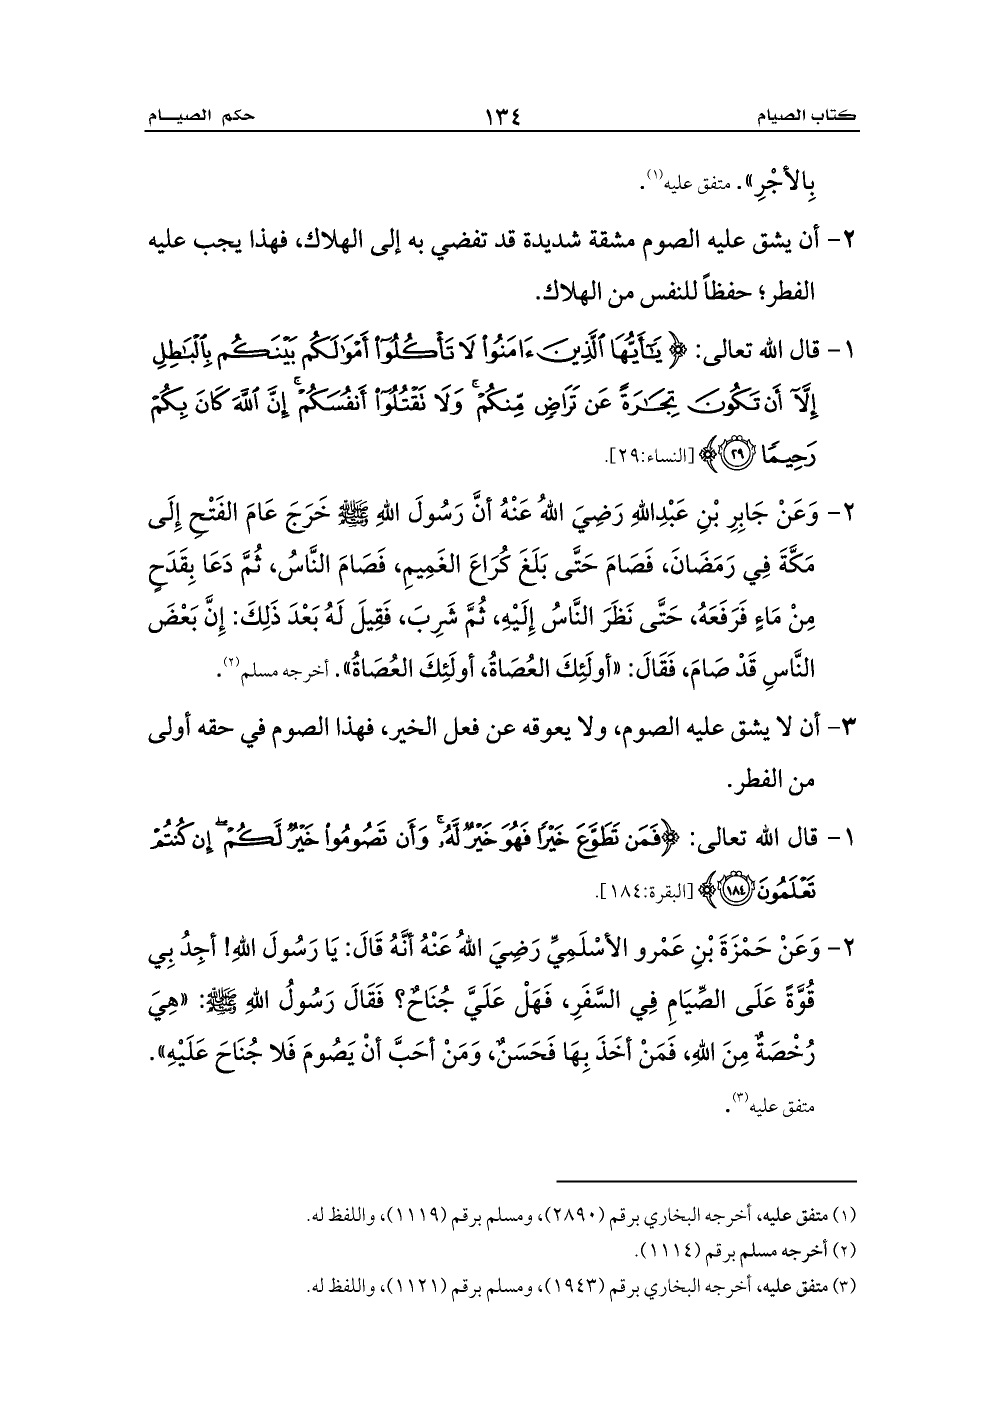 كتاب الصيام ١٣٤ حكم الصيـــام
بِالأجْرِ». متفق عليه(١).
٢- أن يشق عليه الصوم مشقة شديدة قد تفضي به إلى الهلاك، فهذا يجب عليه
الفطر؛ حفظاً للنفس من الهلاك.
١- قال الله تعالى: ﴿يَٰٓأَيُّهَا ٱلَّذِينَ ءَامَنُوا۟ لَا تَأْكُلُوٓا۟ أَمْوَٰلَكُم بَيْنَكُم بِٱلْبَٰطِلِ
إِلَّآ أَن تَكُونَ تِجَٰرَةً عَن تَرَاضٍ مِّنكُمْ ۚ وَلَا تَقْتُلُوٓا۟ أَنفُسَكُمْ ۚ إِنَّ ٱللَّهَ كَانَ بِكُمْ
رَحِيمًا ٢٩﴾ [النساء:٢٩].
٢- وَعَنْ جَابِرِ بْنِ عَبْدِاللهِ رَضِيَ اللهُ عَنْهُ أنَّ رَسُولَ اللهِ ﷺ خَرَجَ عَامَ الفَتْحِ إِلَى
مَكَّةَ فِي رَمَضَانَ، فَصَامَ حَتَّى بَلَغَ كُرَاعَ الغَمِيمِ، فَصَامَ النَّاسُ، ثُمَّ دَعَا بِقَدَحٍ
مِنْ مَاءٍ فَرَفَعَهُ، حَتَّى نَظَرَ النَّاسُ إِلَيْهِ، ثُمَّ شَرِبَ، فَقِيلَ لَهُ بَعْدَ ذَلِكَ: إِنَّ بَعْضَ
النَّاسِ قَدْ صَامَ، فَقَالَ: «أولَئِكَ العُصَاةُ، أولَئِكَ العُصَاةُ». أخرجه مسلم(٢).
٣- أن لا يشق عليه الصوم، ولا يعوقه عن فعل الخير، فهذا الصوم في حقه أولى
من الفطر.
١- قال الله تعالى: ﴿فَمَن تَطَوَّعَ خَيْرًا فَهُوَ خَيْرٌ لَّهُۥ ۚ وَأَن تَصُومُوا۟ خَيْرٌ لَّكُمْ ۖ إِن كُنتُمْ
تَعْلَمُونَ ١٨٤﴾ [البقرة:١٨٤].
٢- وَعَنْ حَمْزَةَ بْنِ عَمْرو الأسْلَمِيِّ رَضِيَ اللهُ عَنْهُ أنَّهُ قَالَ: يَا رَسُولَ اللهِ! أجِدُ بِي
قُوَّةً عَلَى الصِّيَامِ فِي السَّفَرِ، فَهَلْ عَلَيَّ جُنَاحٌ؟ فَقَالَ رَسُولُ اللهِ ﷺ: «هِيَ
رُخْصَةٌ مِنَ اللهِ، فَمَنْ أخَذَ بِهَا فَحَسَنٌ، وَمَنْ أحَبَّ أنْ يَصُومَ فَلا جُنَاحَ عَلَيْهِ».
متفق عليه(٣).
(١) متفق عليه، أخرجه البخاري برقم (٢٨٩٠)، ومسلم برقم (١١١٩)، واللفظ له.
(٢) أخرجه مسلم برقم (١١١٤).
(٣) متفق عليه، أخرجه البخاري برقم (١٩٤٣)، ومسلم برقم (١١٢١)، واللفظ له.